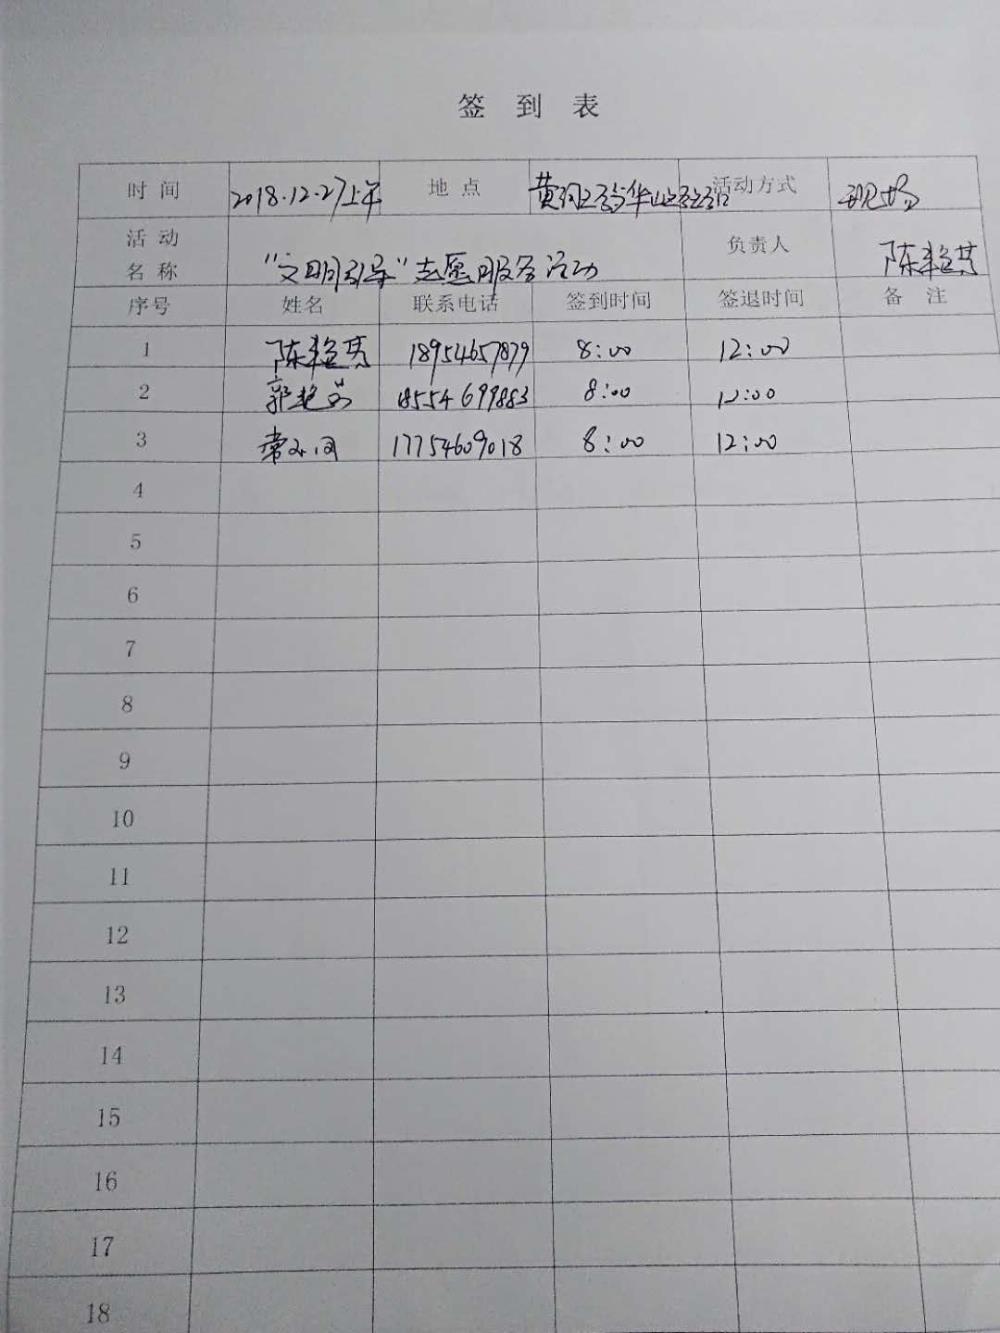 签 到 表
时 间 2018.12.27上午 地 点 黄河路与华山路路口 活动方式 现场
活 动 名 称 “文明引导”志愿服务活动 负责人 陈艳芳
序号 姓名 联系电话 签到时间 签退时间 备 注
1 陈艳芳 18954657879 8:00 12:00
2 郭艳 18554699883 8:00 12:00
3 常 17754609018 8:00 12:00
4
5
6
7
8
9
10
11
12
13
14
15
16
17
18